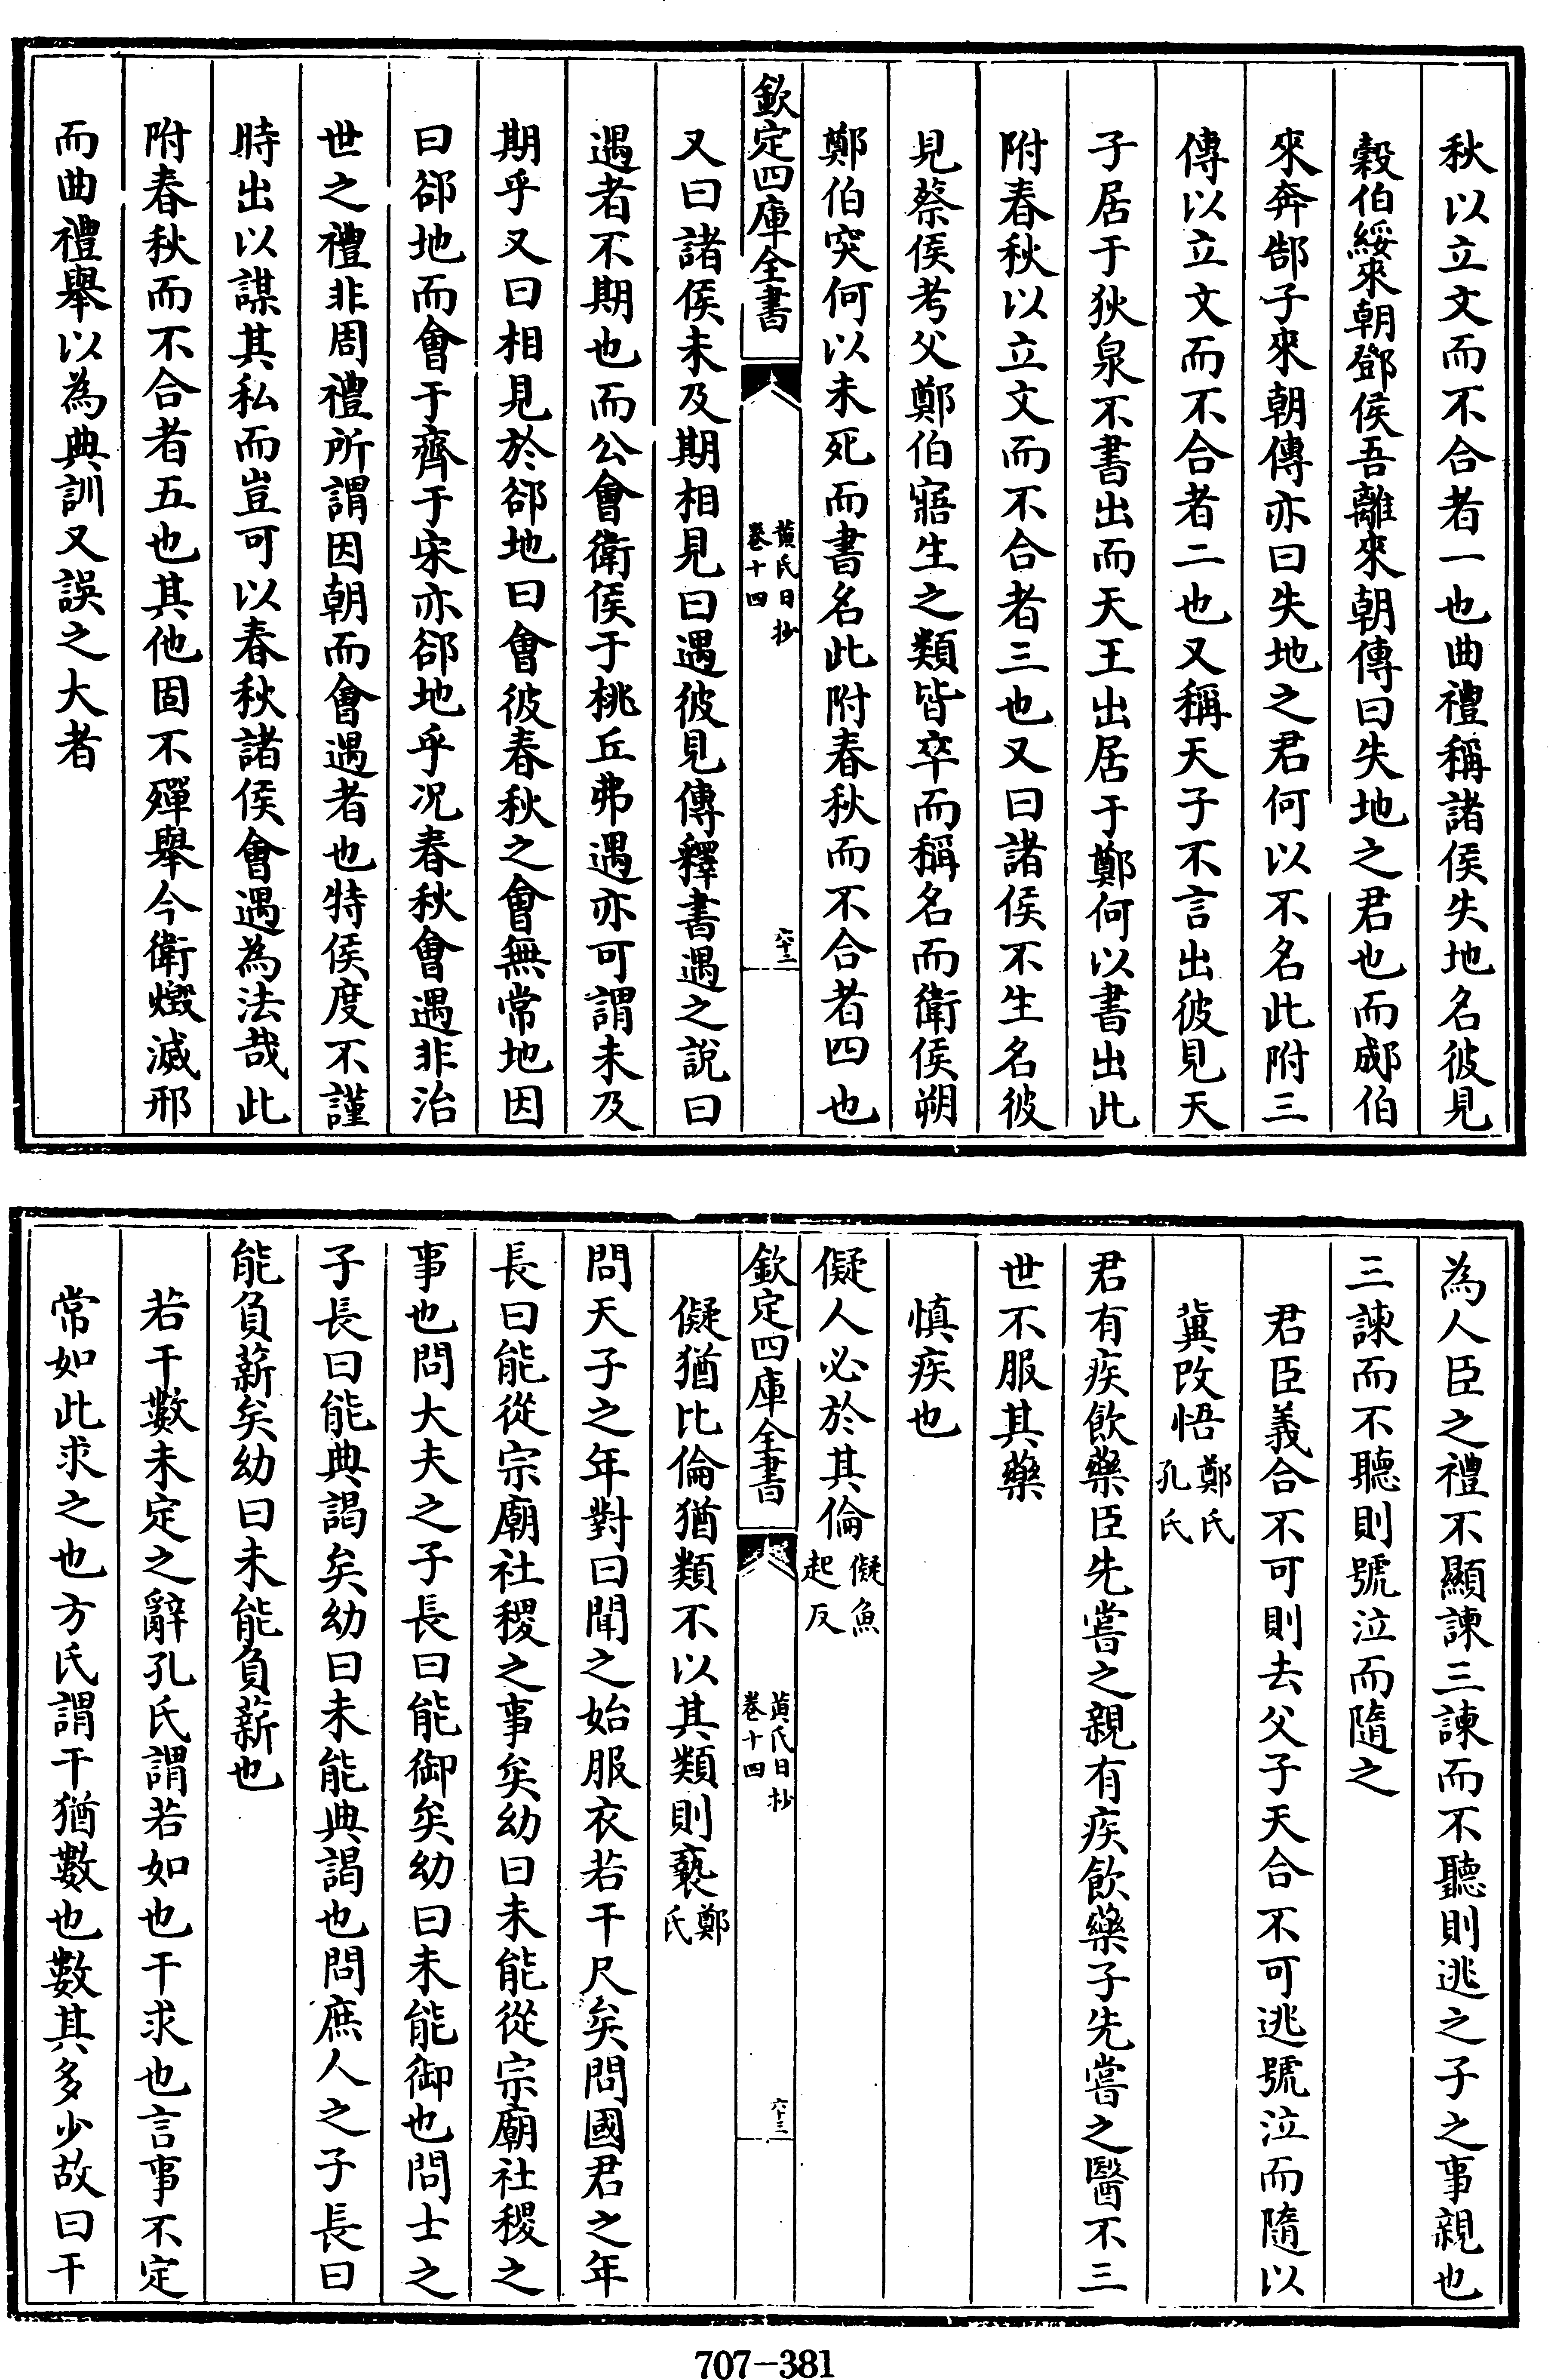 秋以立文而不合者一也曲禮稱諸侯失地名彼見
穀伯綏來朝鄧侯吾離來朝傳曰失地之君也而郕伯
來奔郜子來朝傳亦曰失地之君何以不名此附三
傳以立文而不合者二也又稱天子不言出彼見天
子居于狄泉不書出而天王出居于鄭何以書出此
附春秋以立文而不合者三也又曰諸侯不生名彼
見蔡侯考父鄭伯寤生之類皆卒而稱名而衛侯朔
鄭伯突何以未死而書名此附春秋而不合者四也
欽定四庫全書
黃氏日抄
卷十四
六十二
又曰諸侯未及期相見曰遇彼見傳釋書遇之說曰
遇者不期也而公會衛侯于桃丘弗遇亦可謂未及
期乎又曰相見於郤地曰會彼春秋之會無常地因
曰郤地而會于齊于宋亦郤地乎况春秋會遇非治
世之禮非周禮所謂因朝而會遇者也特侯度不謹
時出以謀其私而豈可以春秋諸侯會遇為法哉此
附春秋而不合者五也其他固不殫舉今衛燬滅邢
而曲禮舉以為典訓又誤之大者
為人臣之禮不顯諫三諫而不聽則逃之子之事親也
三諫而不聽則號泣而隨之
君臣義合不可則去父子天合不可逃號泣而隨以
冀改悟鄭氏孔氏
君有疾飲藥臣先嘗之親有疾飲藥子先嘗之醫不三
世不服其藥
慎疾也
儗人必於其倫儗魚起反
欽定四庫全書
黃氏日抄
卷十四
六十三
儗猶比倫猶類不以其類則褻鄭氏
問天子之年對曰聞之始服衣若干尺矣問國君之年
長曰能從宗廟社稷之事矣幼曰未能從宗廟社稷之
事也問大夫之子長曰能御矣幼曰未能御也問士之
子長曰能典謁矣幼曰未能典謁也問庶人之子長曰
能負薪矣幼曰未能負薪也
若干數未定之辭孔氏謂若如也干求也言事不定
常如此求之也方氏謂干猶數也數其多少故曰干
707-381